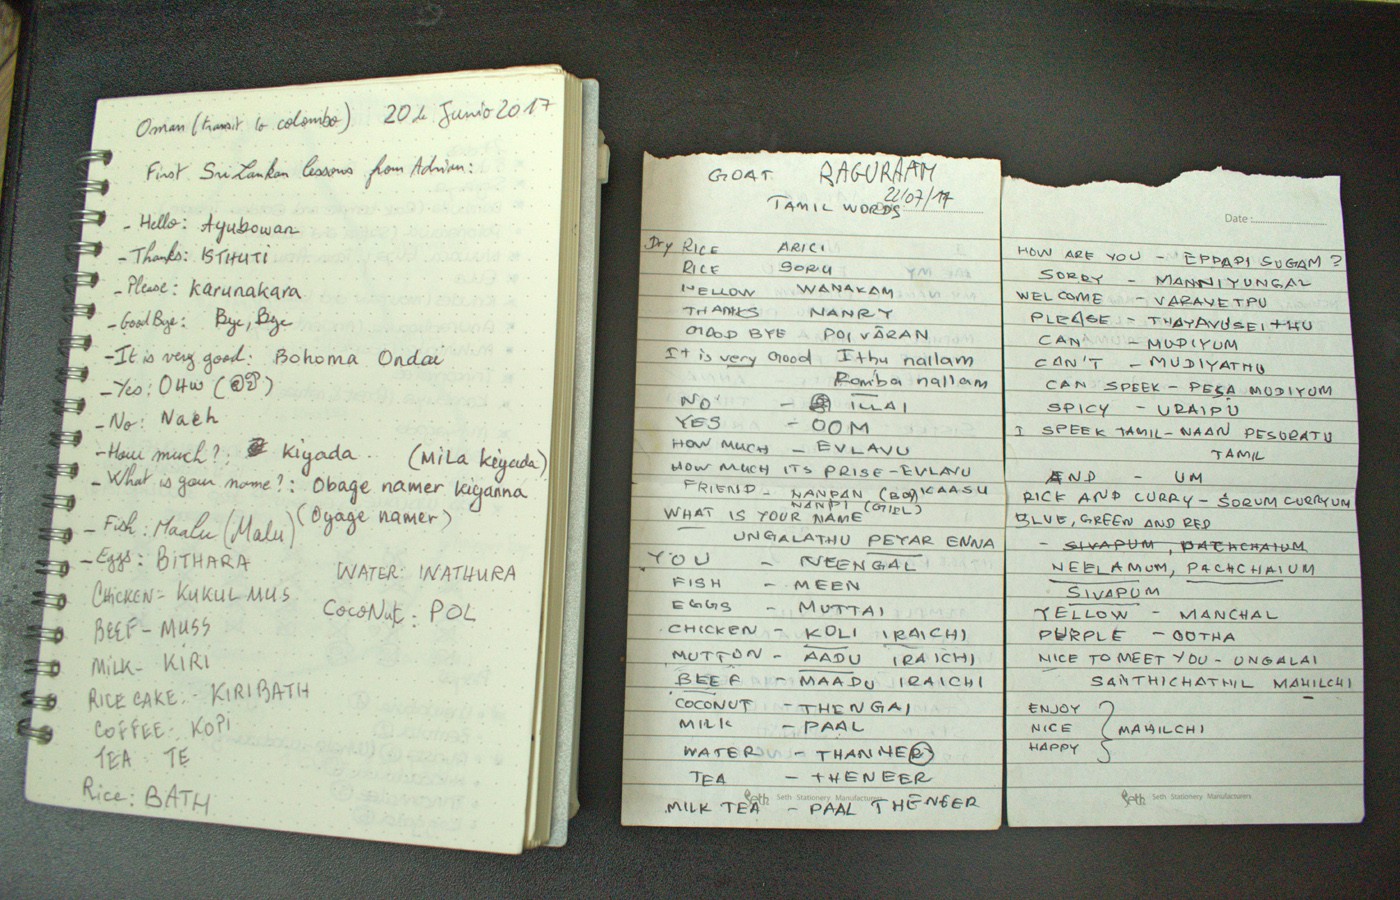 Oman (transit to colombo) 20 de Junio 2017
First Sri Lankan lessons from Adrian:
- Hello: Ayubowan
- Thanks: ISTHUTI
- Please: Karunakara
- Good Bye: Bye, Bye
- It is very good: Bohoma Ondai
- Yes: OHW
- No: Naeh
- How much?: Kiyada (Mila Keyada)
- What is your name?: Obage namer Kiyanna
(Oyage namer)
- Fish: Maalu (Malu)
- Eggs: BITHARA
WATER: INATHURA
CHICKEN - KUKUL MUS
COCONUT: POL
BEEF - MUSS
MILK - KIRI
RICE CAKE. - KIRIBATH
COFFEE: KOPI
TEA: TE
Rice: BATH
GOAT RAGURAAM
22/07/17
TAMIL WORDS
Dry RICE ARICI
RICE SORU
HELLOW WANAKAM
THANKS NANRY
GOOD BYE POI VĀRAN
It is very Good Ithu nallam
Romba nallam
NO - ILLAI
YES - OOM
HOW MUCH - EVLAVU
HOW MUCH ITS PRISE - EVLAVU
KAASU
FRIEND - NANPAN (BOY)
NANPI (GIRL)
WHAT IS YOUR NAME
UNGALATHU PEYAR ENNA
YOU - NEENGAL
FISH - MEEN
EGGS - MUTTAI
CHICKEN - KOLI IRAICHI
MUTTON - AADU IRAICHI
BEEF - MAADU IRAICHI
COCONUT - THENGAI
MILK - PAAL
WATER - THANNEER
TEA - THENEER
MILK TEA - PAAL THENEER
Seth Seth Stationery Manufacturers
Date:
HOW ARE YOU - EPPAPI SUGAM?
SORRY - MANNIYUNGAL
WELCOME - VARAVETPU
PLEASE - THAYAVUSEITHU
CAN - MUDIYUM
CAN'T - MUDIYATHU
CAN SPEEK - PESA MUDIYUM
SPICY - URAIPU
I SPEEK TAMIL - NAAN PESURATU
TAMIL
AND - UM
RICE AND CURRY - SORUM CURRYUM
BLUE, GREEN AND RED
- SIVAPUM, PATCHCHAIUM
NEELAMUM, PACHCHAIUM
SIVAPUM
YELLOW - MANCHAL
PURPLE - OOTHA
NICE TO MEET YOU - UNGALAI
SANTHICHATHIL MAHILCHI
ENJOY
NICE } MAHILCHI
HAPPY
Seth Seth Stationery Manufacturers